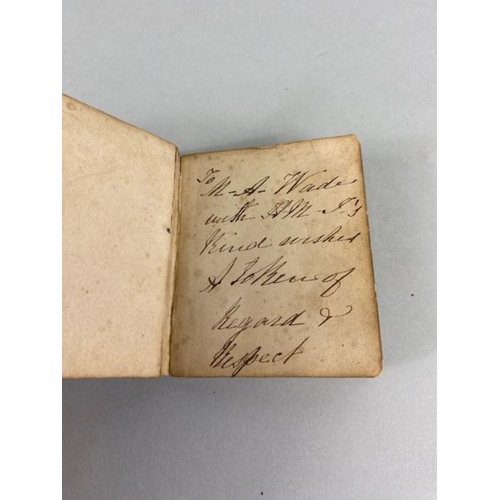 To
M-A- Wade
with HM-T's
Kind wishes
A Token of
Regard &
Respect